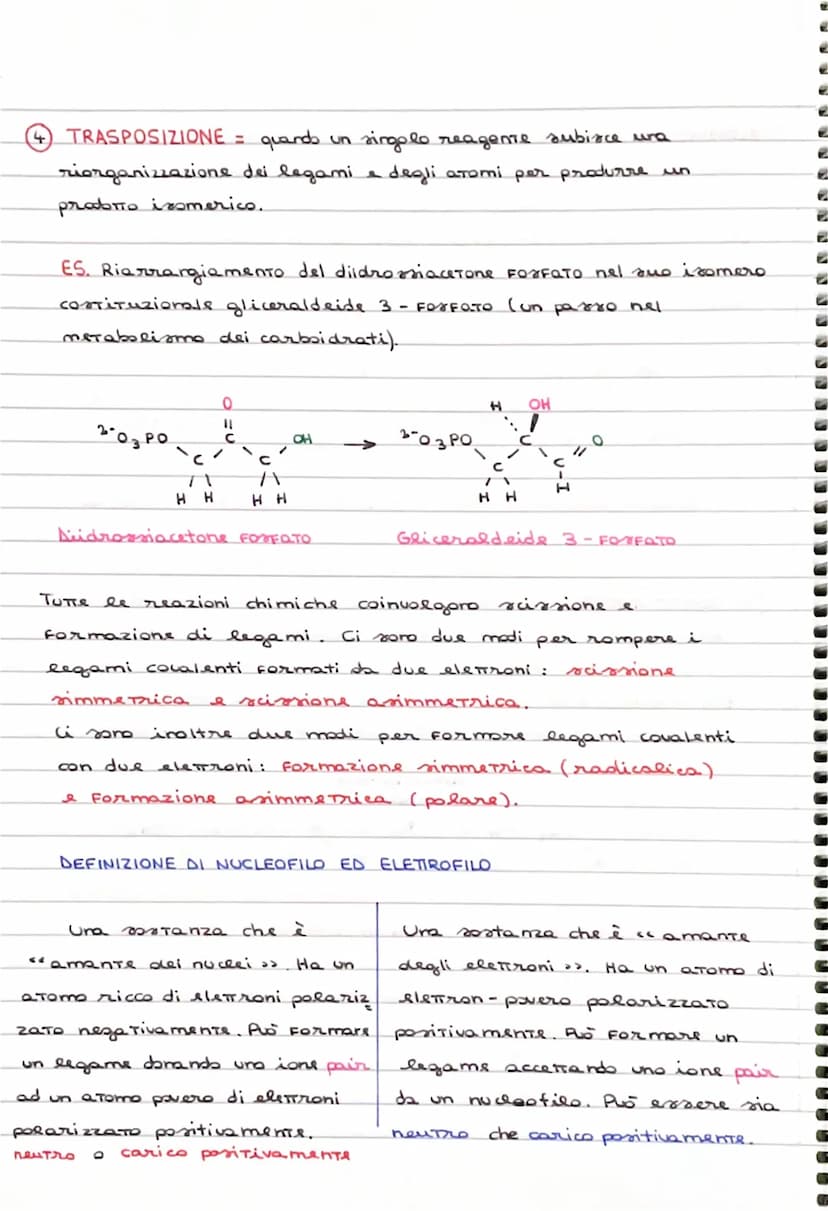 ④ TRASPOSIZIONE = quando un singolo reagente subisce una
riorganizzazione dei legami e degli atomi per produrre un
prodotto isomerico.
ES. Riarrangiamento del diidrossiacetone FOSFATO nel suo isomero
costituzionale gliceraldeide 3-FOSFATO (un passo nel
metabolismo dei carboidrati).
O H OH
²⁻O₃PO C OH → ²⁻O₃PO C O
C C C C
H H H H H H H
Diidrossiacetone FOSFATO Gliceraldeide 3-FOSFATO
Tutte le reazioni chimiche coinvolgono scissione e
Formazione di legami. Ci sono due modi per rompere i
legami covalenti formati da due elettroni: scissione
simmetrica e scissione asimmetrica.
Ci sono inoltre due modi per formare legami covalenti
con due elettroni: Formazione simmetrica (radicalica)
e Formazione asimmetrica (polare).
DEFINIZIONE DI NUCLEOFILO ED ELETTROFILO
Una sostanza che è
«amante dei nuclei». Ha un
atomo ricco di elettroni polariz
zato negativamente. Può Formare
un legame donando uno ione pair
ad un atomo povero di elettroni
polarizzato positivamente.
neutro o carico positivamente
Una sostanza che è «amante
degli elettroni». Ha un atomo di
elettron-povero polarizzato
positivamente. Può Formare un
legame accettando uno ione pair
da un nucleofilo. Può essere sia
neutro che carico positivamente.